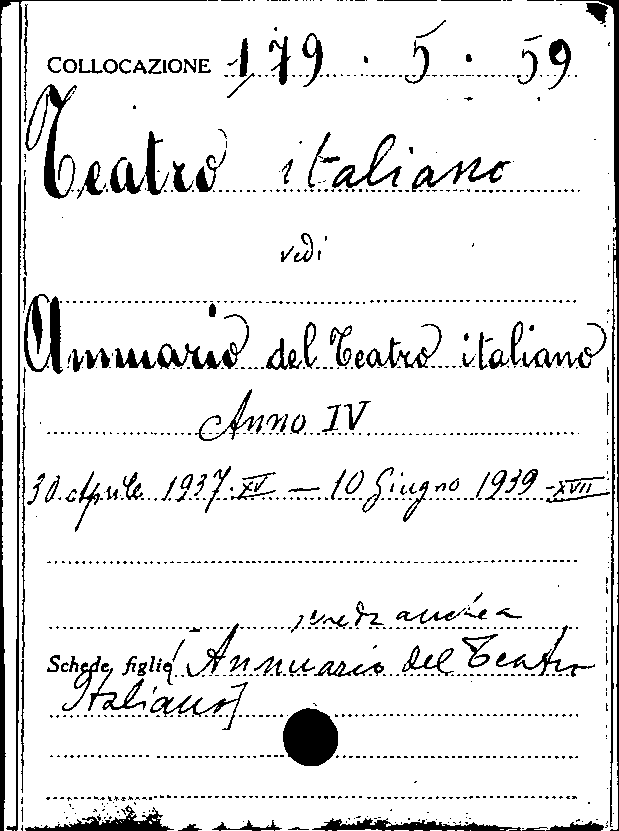 COLLOCAZIONE 179 . 5 . 59
Teatro italiano
vedi
Annuario del Teatro italiano
Anno IV
30 Aprile 1937.XV — 10 Giugno 1939-XVII
Schede figlie [Annuario del Teatro
Italiano]